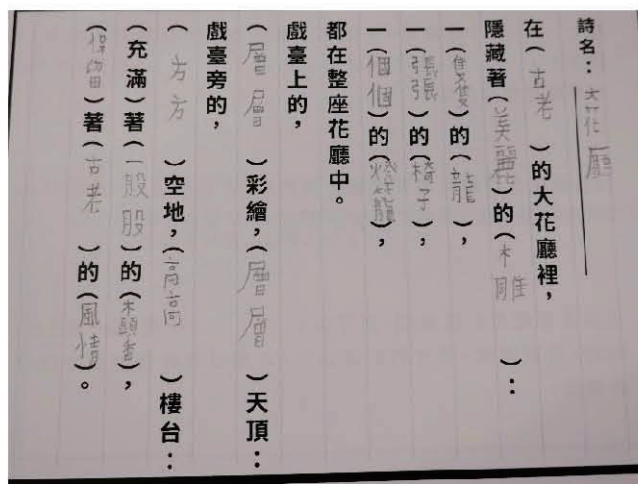 詩名：大花廳
在（古老）的大花廳裡，
隱藏著（美麗）的（木雕）：
一（隻隻）的（龍），
一（張張）的（椅子），
一（個個）的（燈籠），
都在整座花廳中。
戲臺上的，
（層層）彩繪，（層層）天頂：
戲臺旁的，
（方方）空地，（高高）樓台：
（充滿）著（一股股）的（木頭香），
（保留）著（古老）的（風情）。